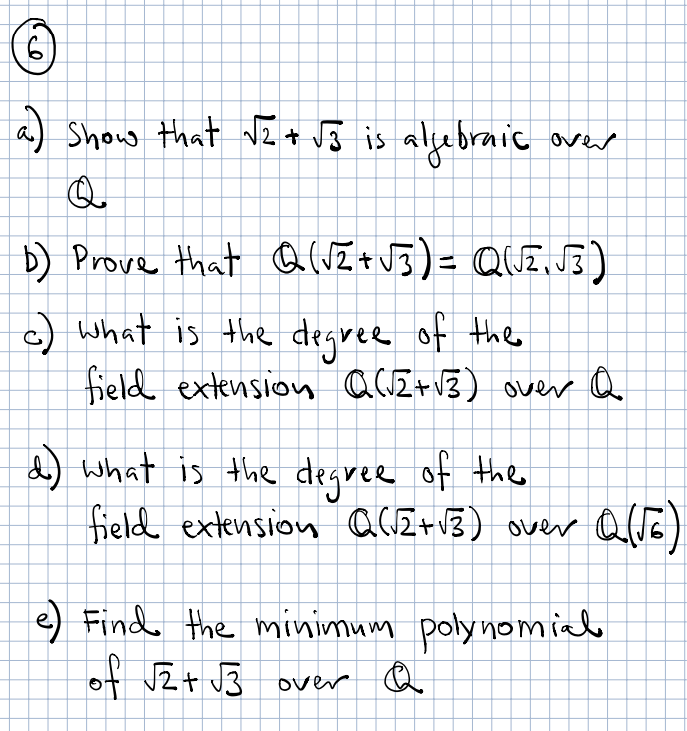 6
a) Show that √2 + √3 is algebraic over
Q
b) Prove that Q(√2 + √3) = Q(√2, √3)
c) what is the degree of the
field extension Q(√2+√3) over Q
d) what is the degree of the
field extension Q(√2+√3) over Q(√6)
e) Find the minimum polynomial
of √2 + √3 over Q